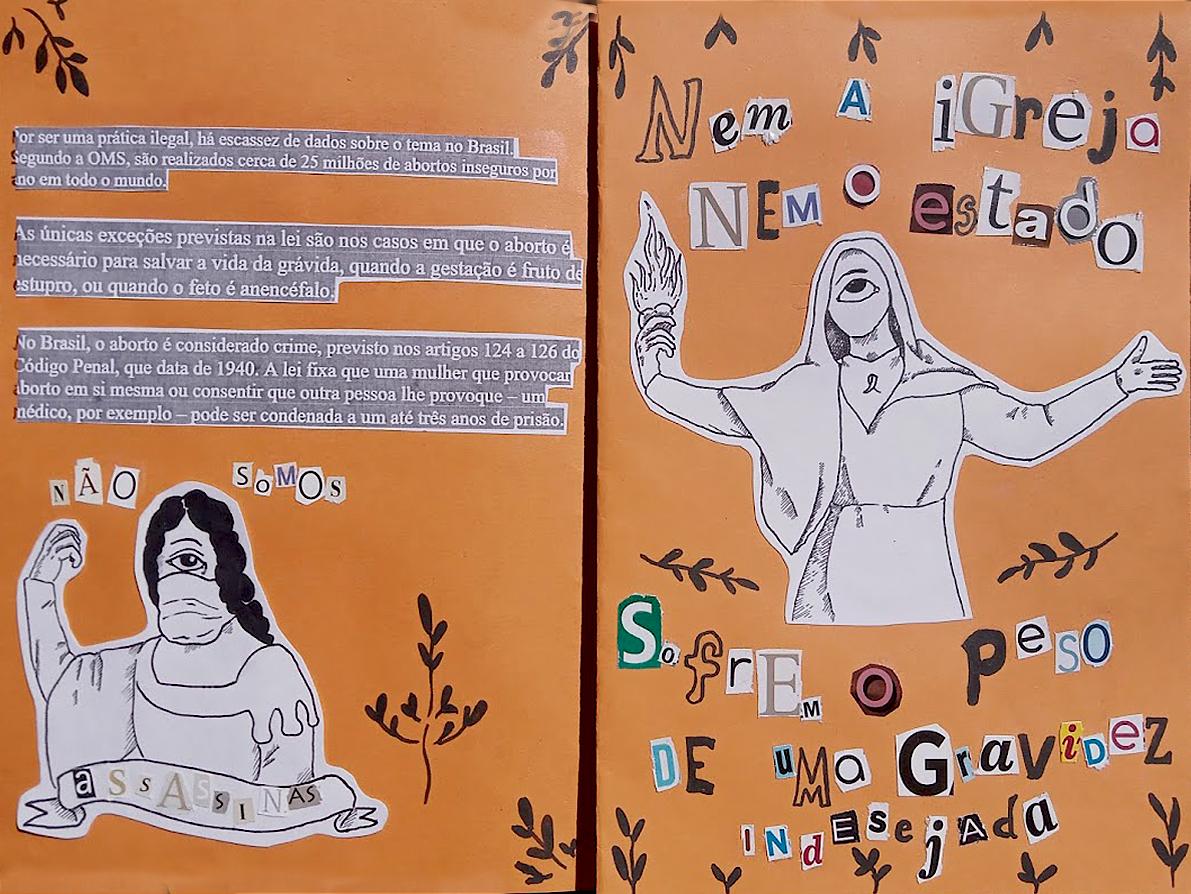 Por ser uma prática ilegal, há escassez de dados sobre o tema no Brasil.
Segundo a OMS, são realizados cerca de 25 milhões de abortos inseguros por
ano em todo o mundo.
As únicas exceções previstas na lei são nos casos em que o aborto é
necessário para salvar a vida da grávida, quando a gestação é fruto de
estupro, ou quando o feto é anencéfalo.
No Brasil, o aborto é considerado crime, previsto nos artigos 124 a 126 do
Código Penal, que data de 1940. A lei fixa que uma mulher que provocar
aborto em si mesma ou consentir que outra pessoa lhe provoque – um
médico, por exemplo – pode ser condenada a um até três anos de prisão.
NÃO SoMOS
aSsAsSINAS
Nem A iGreja
NEM O estado
SofrEM O pESO
DE uMa GravidEZ
INdESejAda